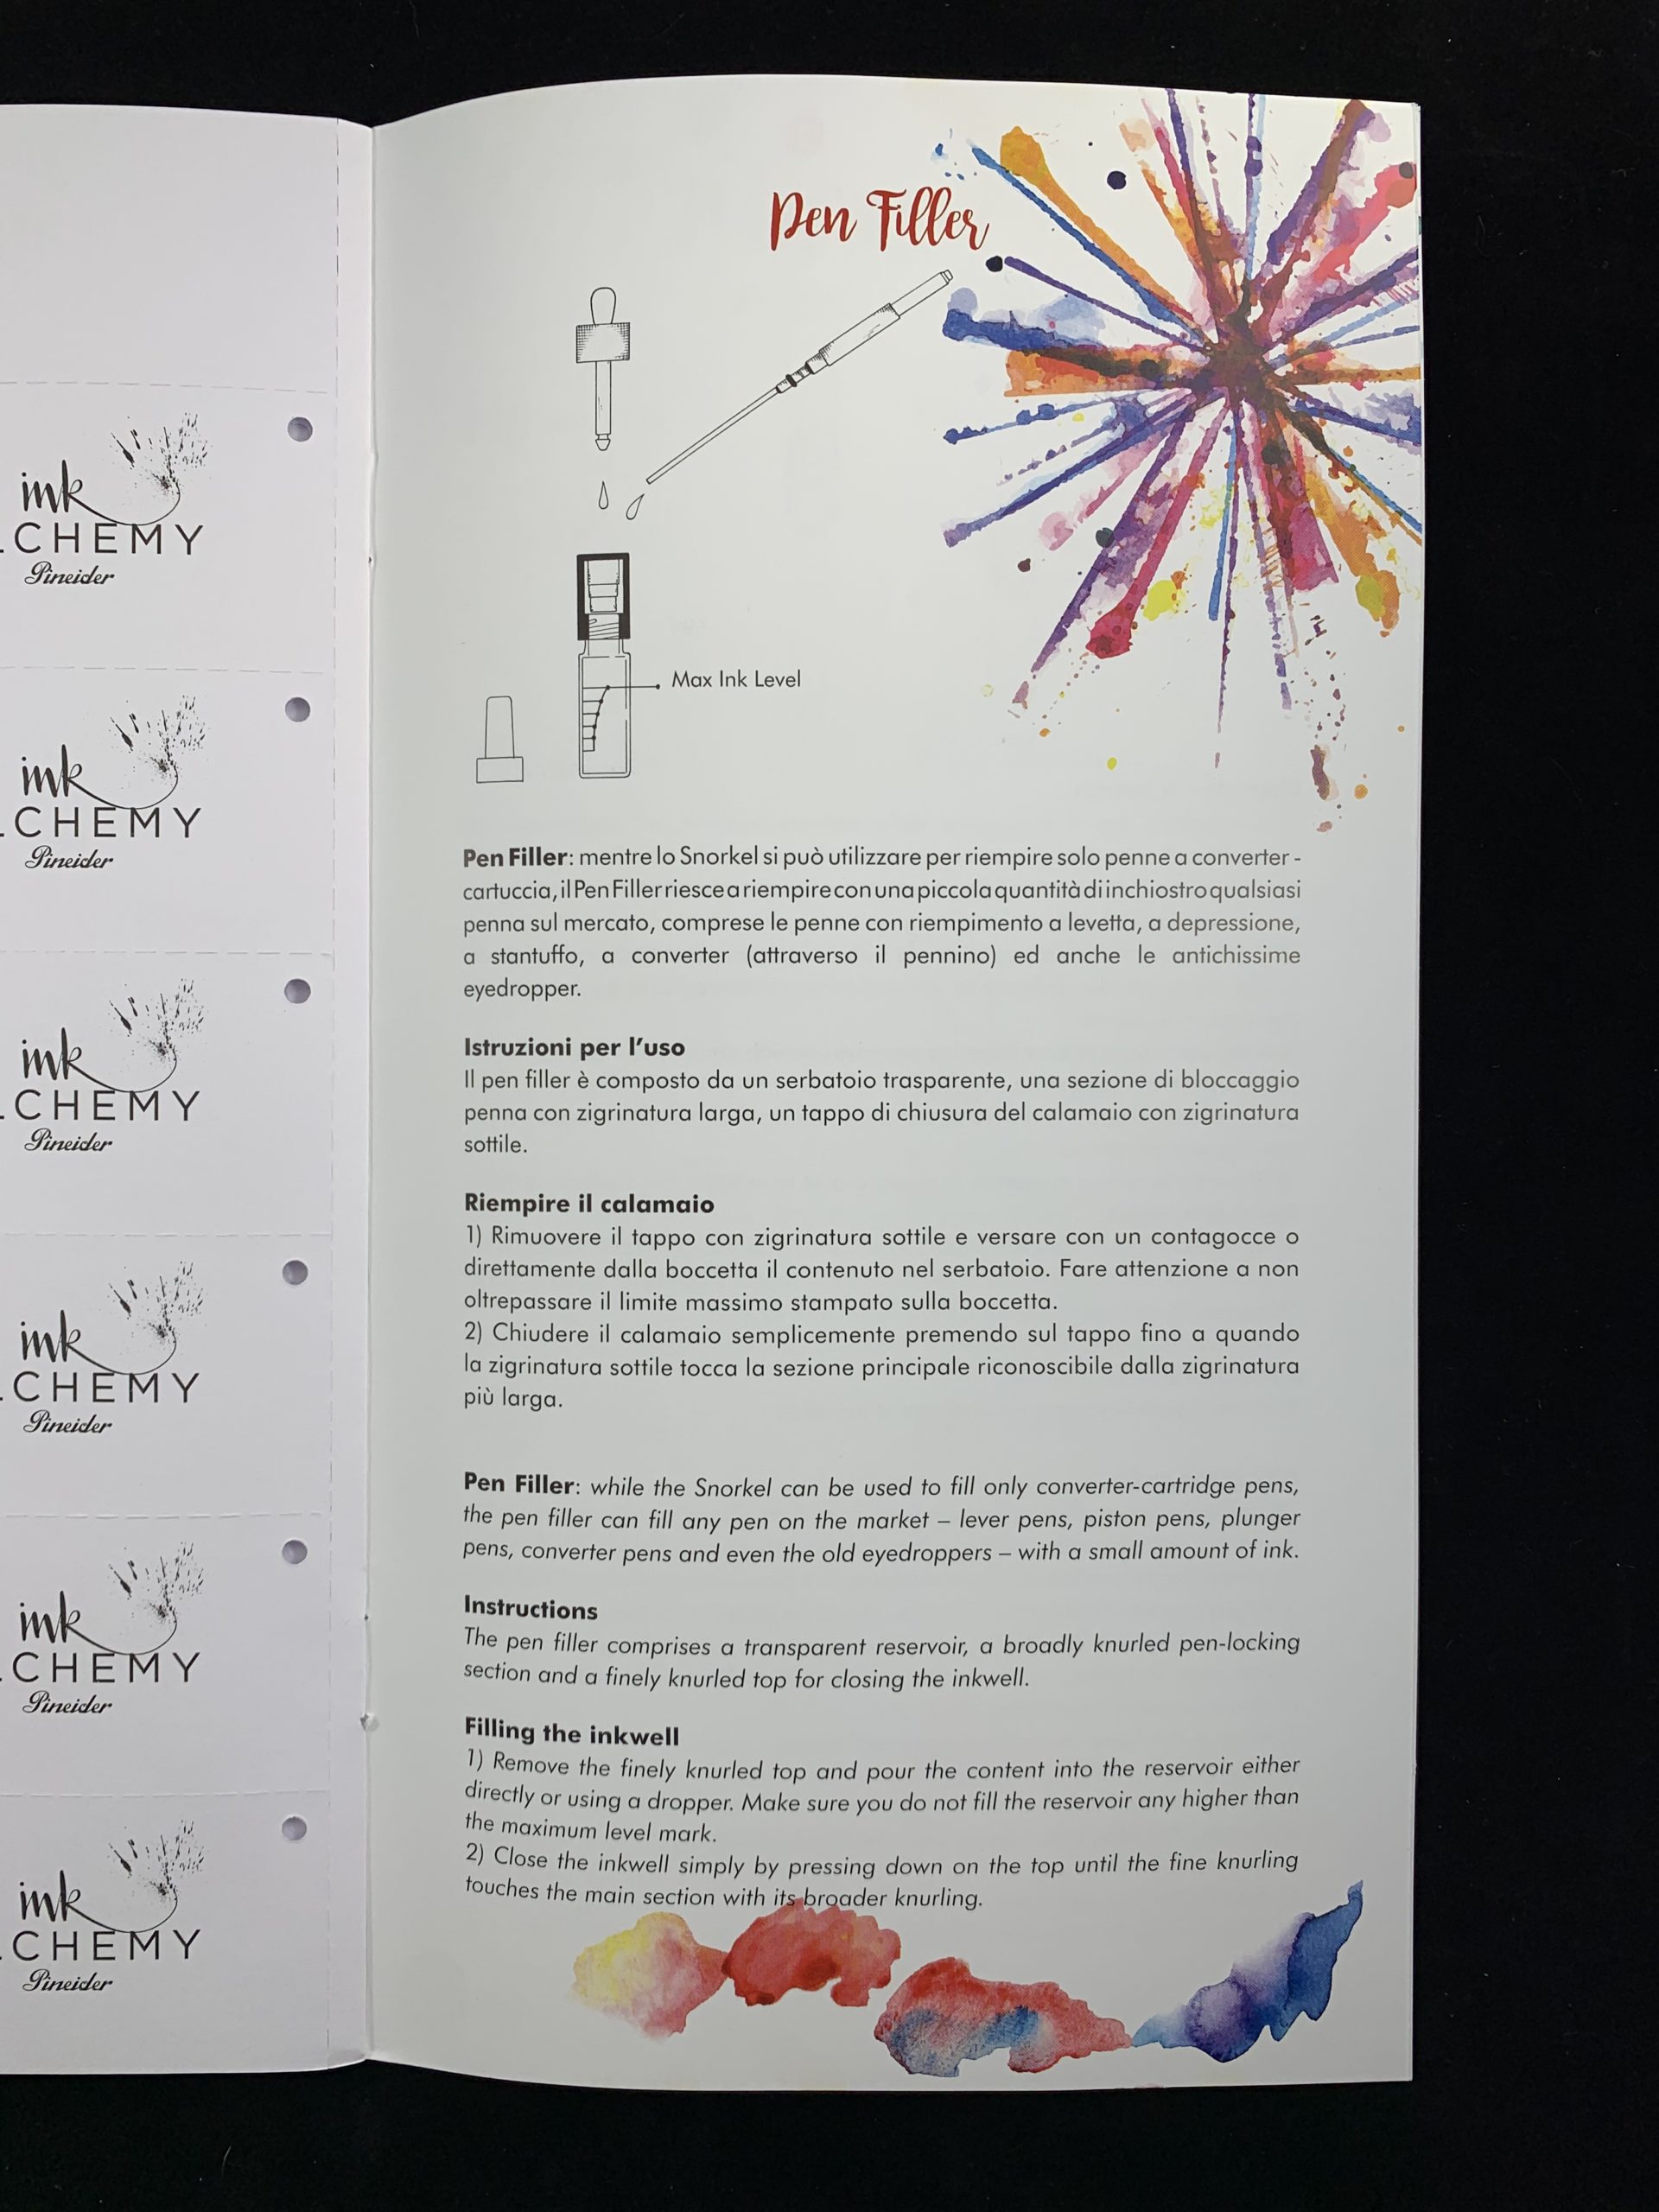 ink
CHEMY
Pineider
ink
CHEMY
Pineider
ink
CHEMY
Pineider
ink
CHEMY
Pineider
ink
CHEMY
Pineider
ink
CHEMY
Pineider
Pen Filler
Max Ink Level
Pen Filler: mentre lo Snorkel si può utilizzare per riempire solo penne a converter -
cartuccia, il Pen Filler riesce a riempire con una piccola quantità di inchiostro qualsiasi
penna sul mercato, comprese le penne con riempimento a levetta, a depressione,
a stantuffo, a converter (attraverso il pennino) ed anche le antichissime
eyedropper.
Istruzioni per l'uso
Il pen filler è composto da un serbatoio trasparente, una sezione di bloccaggio
penna con zigrinatura larga, un tappo di chiusura del calamaio con zigrinatura
sottile.
Riempire il calamaio
1) Rimuovere il tappo con zigrinatura sottile e versare con un contagocce o
direttamente dalla boccetta il contenuto nel serbatoio. Fare attenzione a non
oltrepassare il limite massimo stampato sulla boccetta.
2) Chiudere il calamaio semplicemente premendo sul tappo fino a quando
la zigrinatura sottile tocca la sezione principale riconoscibile dalla zigrinatura
più larga.
Pen Filler: while the Snorkel can be used to fill only converter-cartridge pens,
the pen filler can fill any pen on the market – lever pens, piston pens, plunger
pens, converter pens and even the old eyedroppers – with a small amount of ink.
Instructions
The pen filler comprises a transparent reservoir, a broadly knurled pen-locking
section and a finely knurled top for closing the inkwell.
Filling the inkwell
1) Remove the finely knurled top and pour the content into the reservoir either
directly or using a dropper. Make sure you do not fill the reservoir any higher than
the maximum level mark.
2) Close the inkwell simply by pressing down on the top until the fine knurling
touches the main section with its broader knurling.